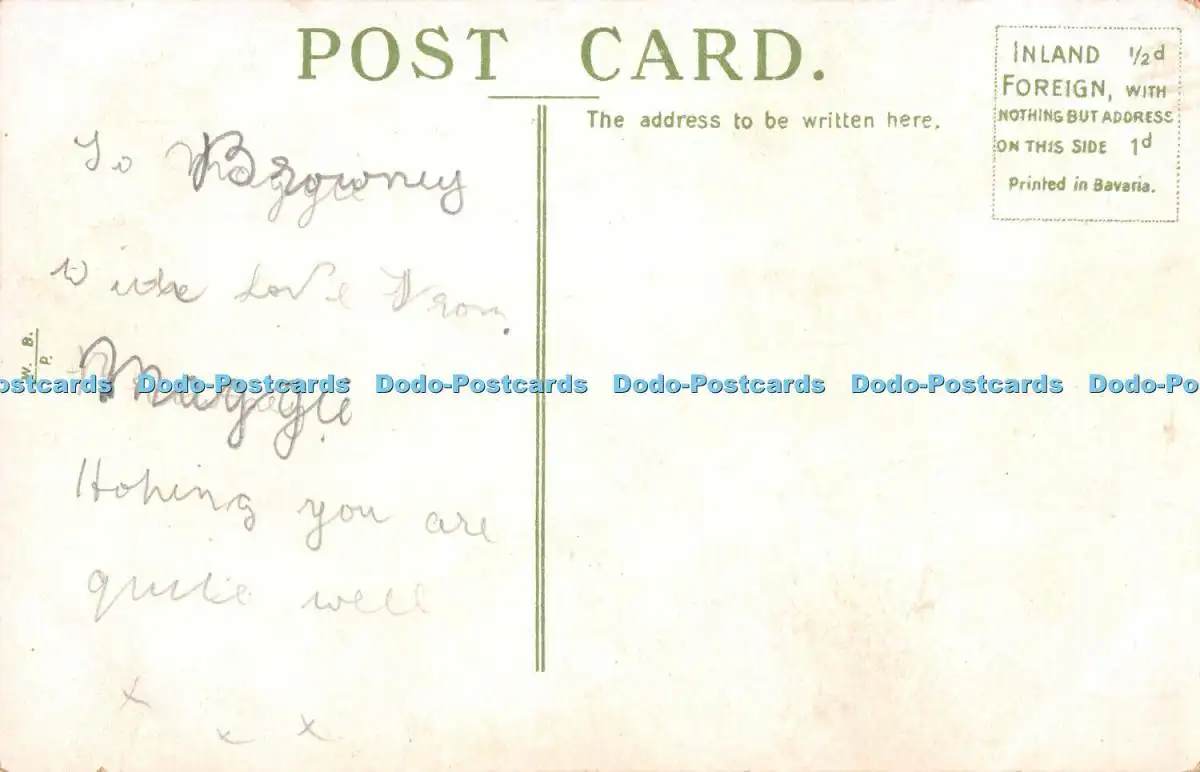 POST CARD.
The address to be written here.
INLAND ½d
FOREIGN, WITH
NOTHING BUT ADDRESS
ON THIS SIDE 1d
Printed in Bavaria.
To Browney
with Love From
Maggie
Hoping you are
quite well
x
x x
W. B.
P.
Dodo-Postcards Dodo-Postcards Dodo-Postcards Dodo-Postcards